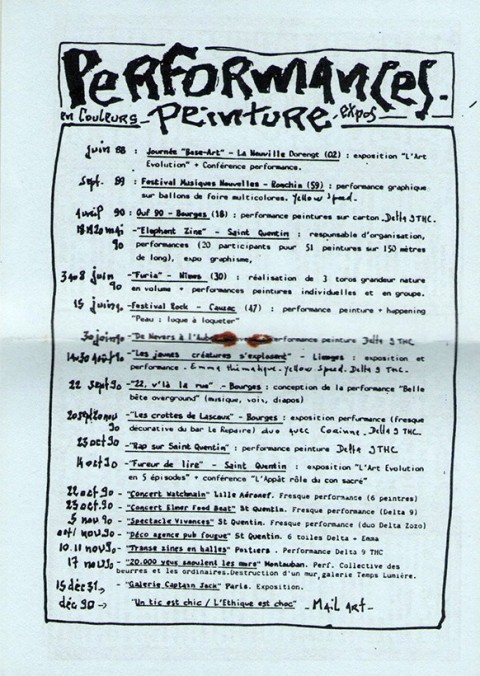 PERFORMANCES.
en COULEURS - PEINTURE - expos -
juin 88 : Journée "Base-Art" - La Neuville Dorengt (02) : exposition "L'Art
Evolution" + Conférence performance.
Sept. 89 : Festival Musiques Nouvelles - Ronchin (59) : performance graphique
sur ballons de foire multicolores. Yellow Speed.
4 avril 90 : Ouf 90 - Bourges (18) : performance peintures sur carton. Delta 9 THC.
18 19 20 mai - "Elephant Zine" - Saint Quentin : responsable d'organisation,
90 performances (20 participants pour 51 peintures sur 150 mètres
de long), expo graphisme,
juin - "Furia" - Nimes (30) : réalisation de 3 toros grandeur nature
90 en volume + performances peintures individuelles et en groupe.
15 juin - Festival Rock - Cauzac (47) : performance peinture + happening
"Peau : luque à loqueter"
30 juin 90 - "De Nevers à performance peinture Delta 9 THC
août 90 - "Les jeunes créatures s'explosent" - Limoges : exposition et
performance - Emma thématique - Yellow Speed. Delta 9 THC.
22 sept 90 - "22, v'là la rue" - Bourges : conception de la performance "Belle
bête overground" (musique, voix, diapos)
20 sept 20 nov 90 - "Les crottes de Lascaux" - Bourges : exposition performance (fresque
décorative du bar Le Repaire) duo avec Corinne - Delta 9 THC.
23 oct 90 - "Rap sur Saint Quentin" : performance peinture Delta 9 THC
14 oct 90 - "Fureur de lire" - Saint Quentin : exposition "L'Art Evolution
en 5 épisodes" + conférence "L'Appât rôle du con sacré"
22 oct 90 - "Concert Watchmain" Lille Aéronef. Fresque performance (6 peintres)
23 oct 90 - "Concert Elmer Food Beat" St Quentin. Fresque performance (Delta 9)
5 nov 90 - "Spectacle Vivances" St Quentin. Fresque performance (duo Delta Zozo)
oct / nov 90 - "Déco agence pub fougue" St Quentin. 6 toiles Delta - Emma
10.11 nov 90 - "Transe zines en balles" Poitiers . Performance Delta 9 THC
17 nov 90 - "20.000 yeux saoulent les murs" Montauban. Perf. Collective des
beurres et les ordinaires. Destruction d'un mur, galerie Temps Lumière.
15 déc 31 → "Galerie Captain Jack" Paris. Exposition.
déc 90 → "Un tic est chic / L'Ethique est choc" - MAIL ART -